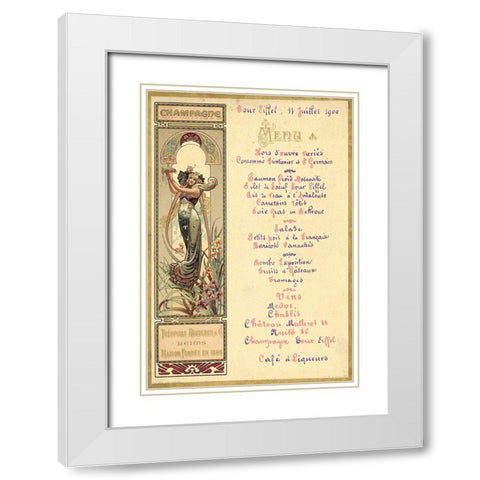 CHAMPAGNE
THÉOPHILE ROEDERER & Cº
REIMS
MAISON FONDÉE EN 1864
Tour Eiffel, 11 Juillet 1900
MENU
Hors d'œuvre Variés
Consommé Printanier & St Germain
Saumon froid Moscovite
Filet de Bœuf Tour Eiffel
Ris de Veau à l'Andalouse
Canetons rôtis
Foie Gras en Bellevue
Salade
Petits pois à la Française
Haricots Panachés
Bombe Exposition
Fruits & Gâteaux
Fromages
Vins
Médoc,
Chablis
Château Malleret
Nuits
Champagne Tour Eiffel
Café & Liqueurs